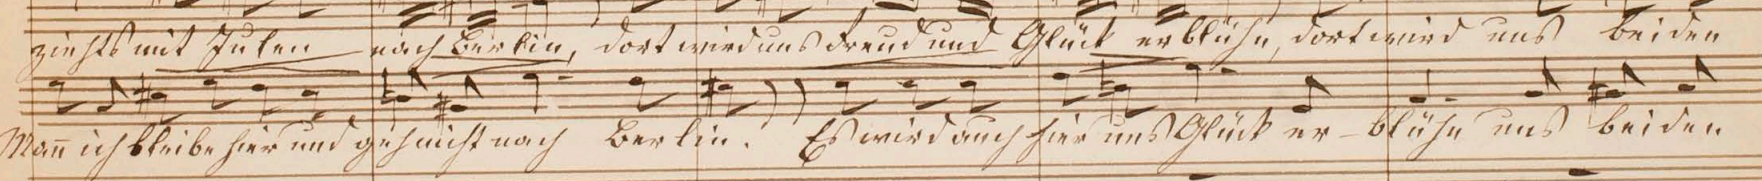 ziehts mit Julen nach Berlin, dort wird uns Freud und Glück erblühn, dort wird uns beiden
Mañ ich bleibe hier und geh nicht nach Berlin. Es wird auch hier uns Glück er-blühn uns beiden